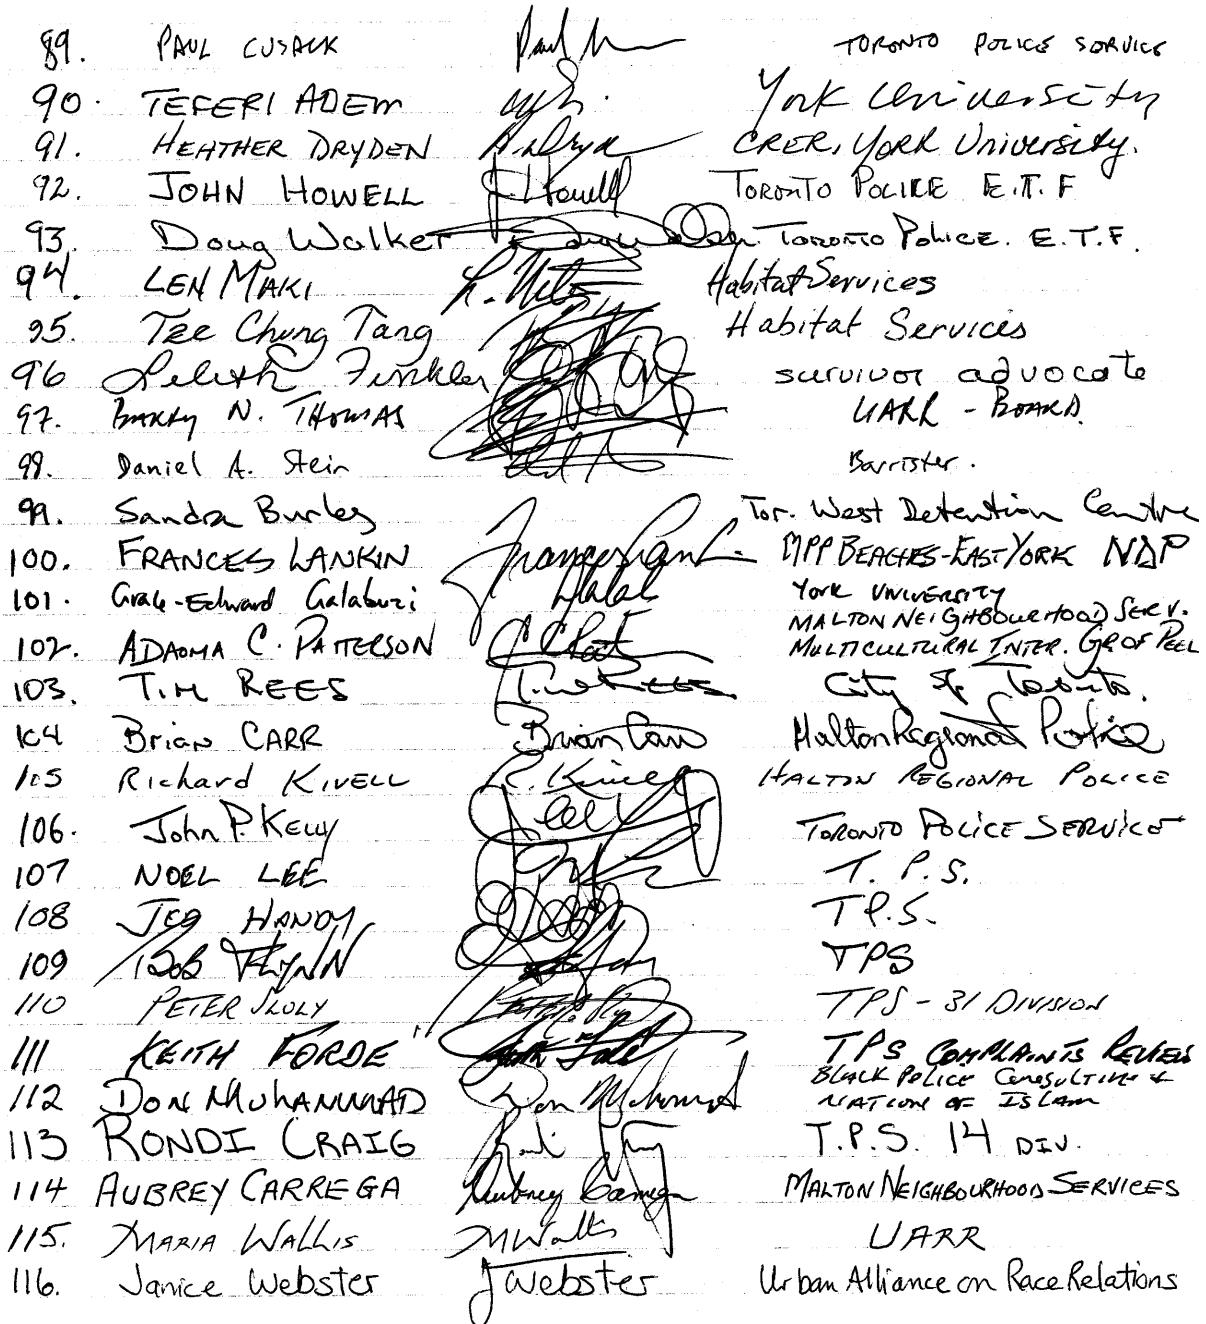 89. PAUL CUSACK Paul TORONTO POLICE SERVICE
90. TEFERI ADEM York University
91. HEATHER DRYDEN CRER, YORK University.
92. JOHN HOWELL J. Howell TORONTO POLICE E.T.F
93. Doug Walker Doug Walker TORONTO POLICE. E.T.F.
94. LEN MAKI L. Habitat Services
95. Tze Chung Tang Habitat Services
96 Lilith Finkler survivor advocate
97. BARRY N. THOMAS UARR - BOARD.
98. Daniel A. Stein Barrister.
99. Sandra Burley Tor. West Detention Centre
100. FRANCES LANKIN Frances Lank. MPP BEACHES-EAST YORK NDP
101. Grace-Edward Galabuzi YORK UNIVERSITY
MALTON NEIGHBOURHOOD SERV.
102. ADAOMA C. PATTERSON MULTICULTURAL INTER. GR OF PEEL
103. TIM REES Tim REES City of Toronto.
104 Brian CARR Brian Carr Halton Regional Police
105 Richard KIVELL R. Kivell HALTON REGIONAL POLICE
106. John P. Kelly TORONTO POLICE SERVICE
107 NOEL LEE T.P.S.
108 JEG HANDY T.P.S.
109 BOB FLYNN TPS
110 PETER SLOLY TPS - 31 DIVISION
111 KEITH FORDE Keith Forde TPS COMPLAINTS REVIEW
BLACK POLICE CONSULTIVE &
112 DON MUHAMMAD Don Muhammad NATION OF ISLAM
113 RONDI CRAIG T.P.S. 14 DIV.
114 AUBREY CARREGA Aubrey Carrega MALTON NEIGHBOURHOOD SERVICES
115. MARIA WALLIS M Wallis UARR
116. Janice Webster J Webster Urban Alliance on Race Relations